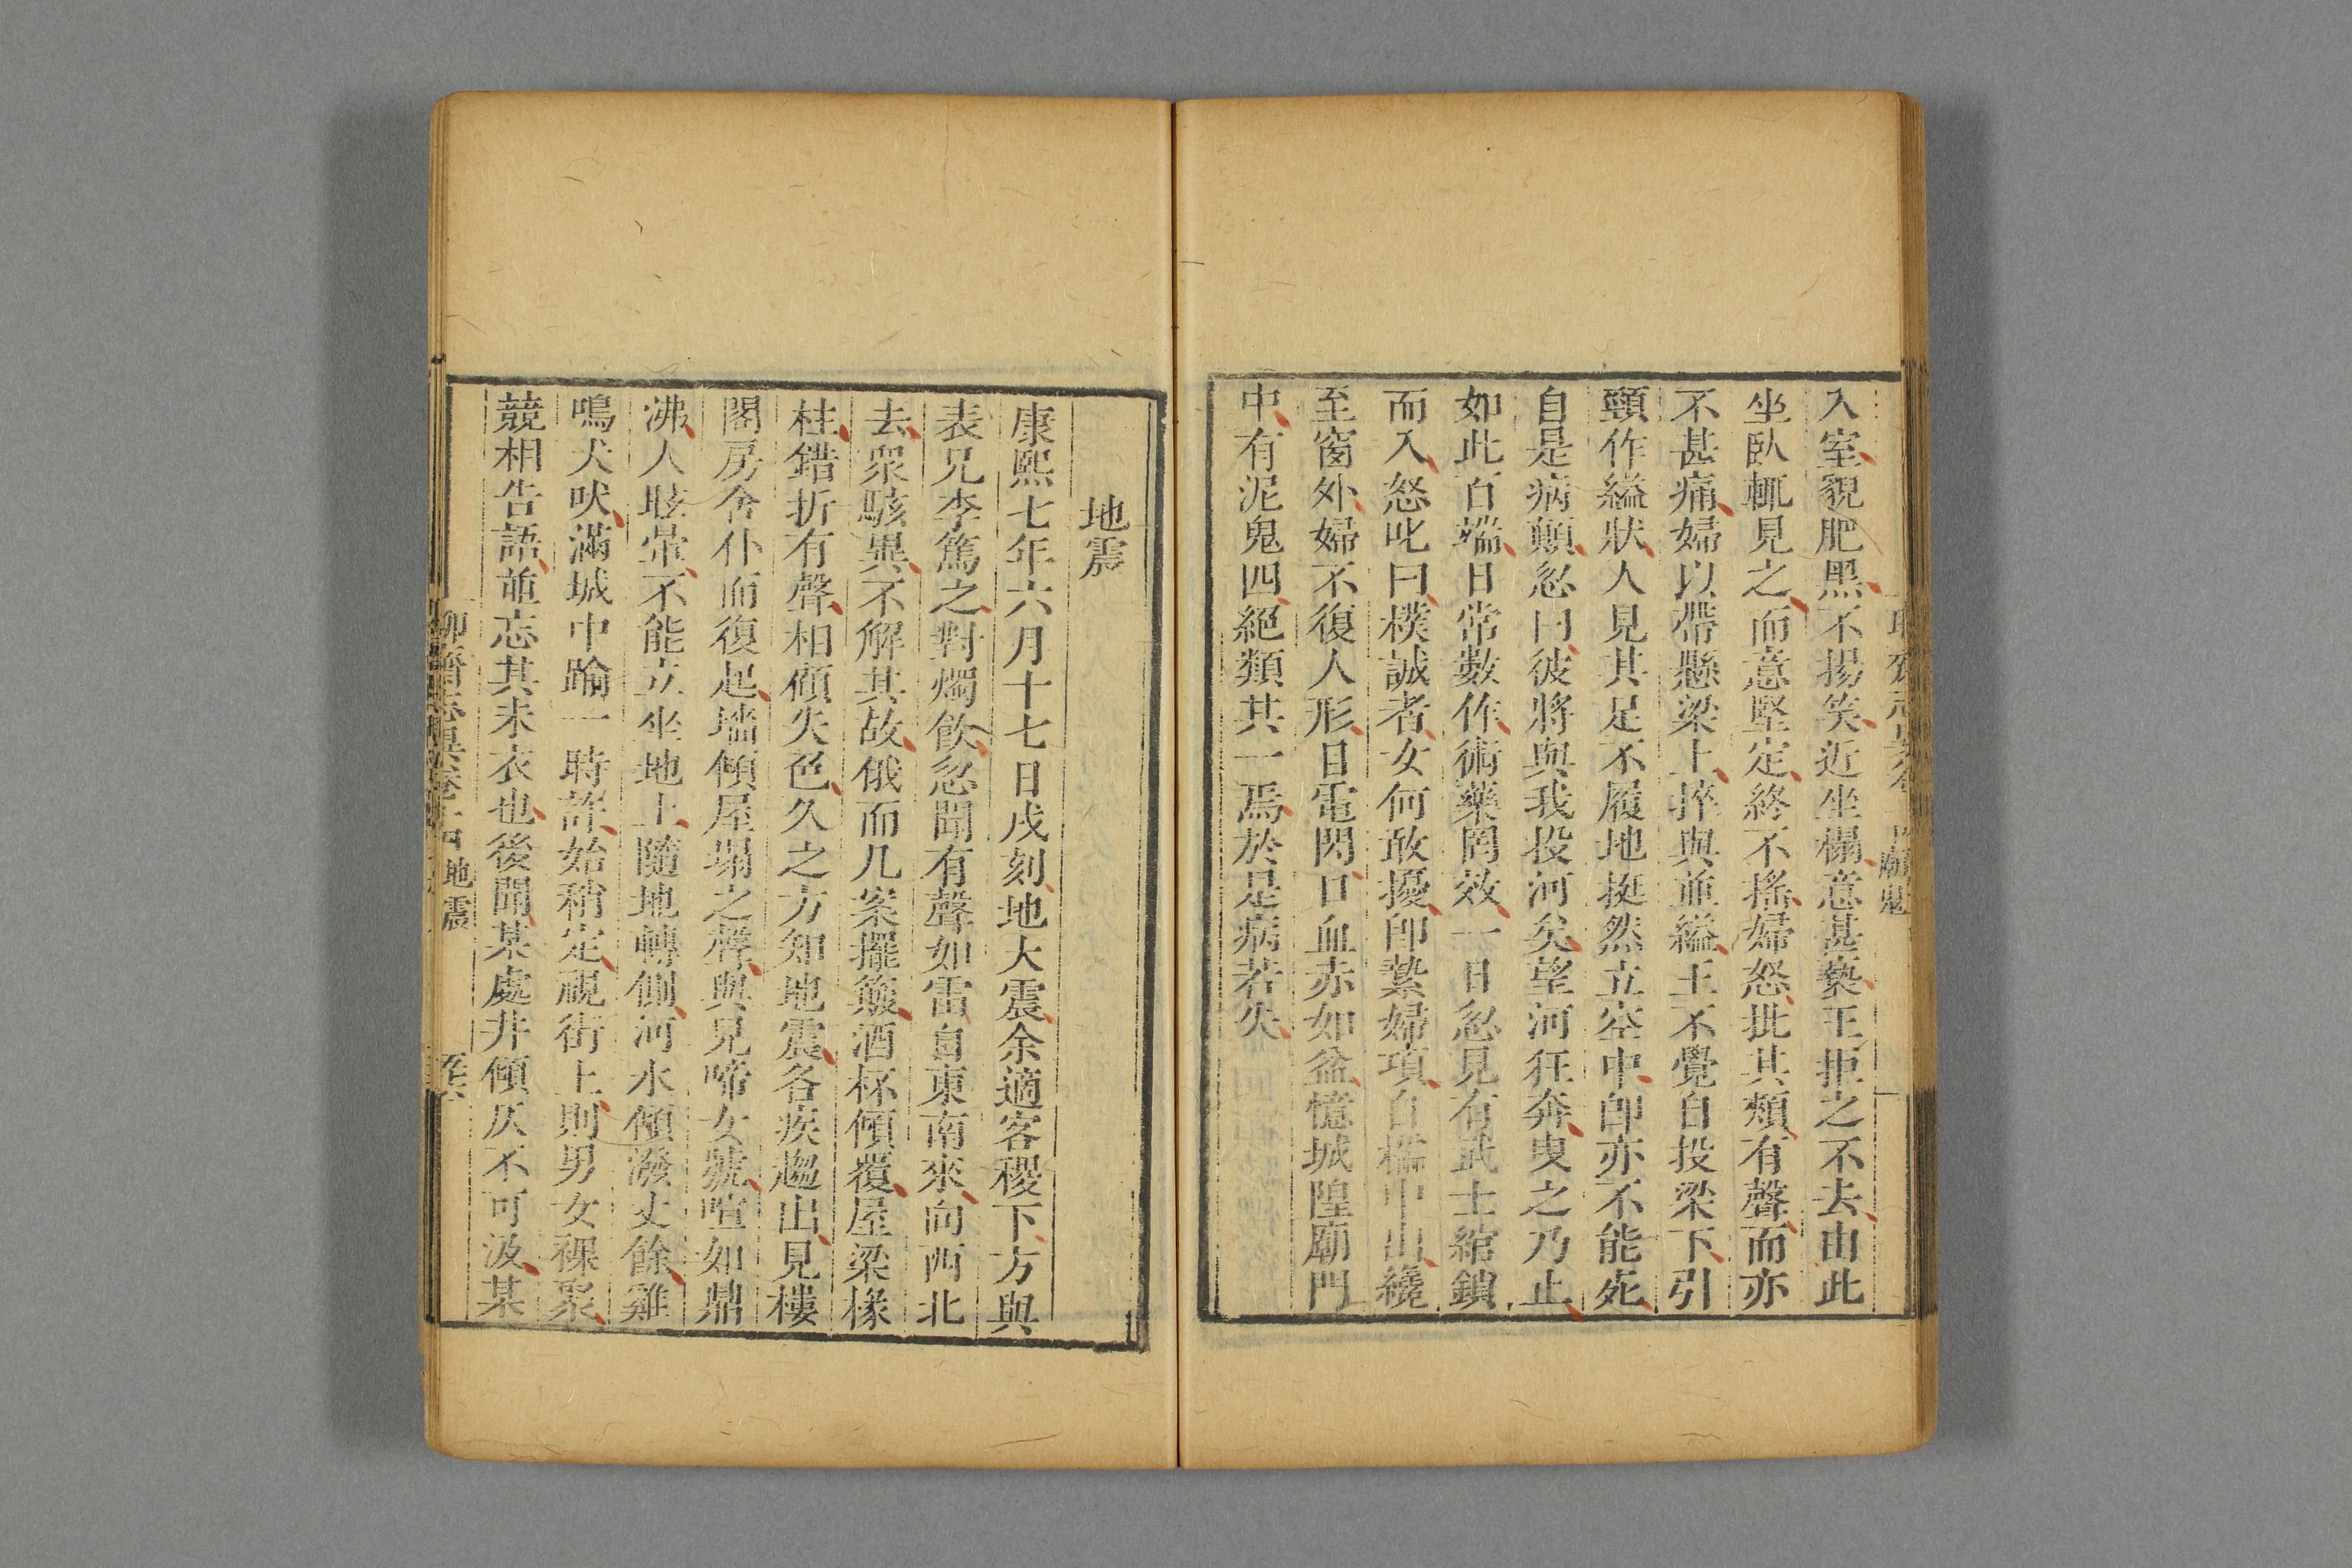 入室貌肥黑不揚笑近坐榻意甚褻王拒之不去由此
坐臥輒見之而意堅定終不搖婦怒批其頰有聲而亦
不甚痛婦以帶懸梁上捽與並縊王不覺自投梁下引
頸作縊狀人見其足不履地挺然立空中卽亦不能死
自是病顛忽曰彼將與我投河矣望河狂奔曳之乃止
如此百端日常數作術藥罔效一日忽見有武士綰鎖
而入怒叱曰樸誠者女何敢擾卽縶婦項自櫺中出纔
至窗外婦不復人形目電閃口血赤如盆憶城隍廟門
中有泥鬼四絕類其一焉於是病若失
地震
康熙七年六月十七日戌刻地大震余適客稷下方與
表兄李篤之對燭飲忽聞有聲如雷自東南來向西北
去衆駭異不解其故俄而几案擺簸酒杯傾覆屋梁椽
柱錯折有聲相顧失色久之方知地震各疾趨出見樓
閣房舍仆而復起墻傾屋塌之聲與兒啼女號喧如鼎
沸人眩暈不能立坐地上隨地轉側河水傾潑丈餘雞
鳴犬吠滿城中踰一時許始稍定視街上則男女裸聚
競相告語並忘其未衣也後聞某處井傾仄不可汲某
地震